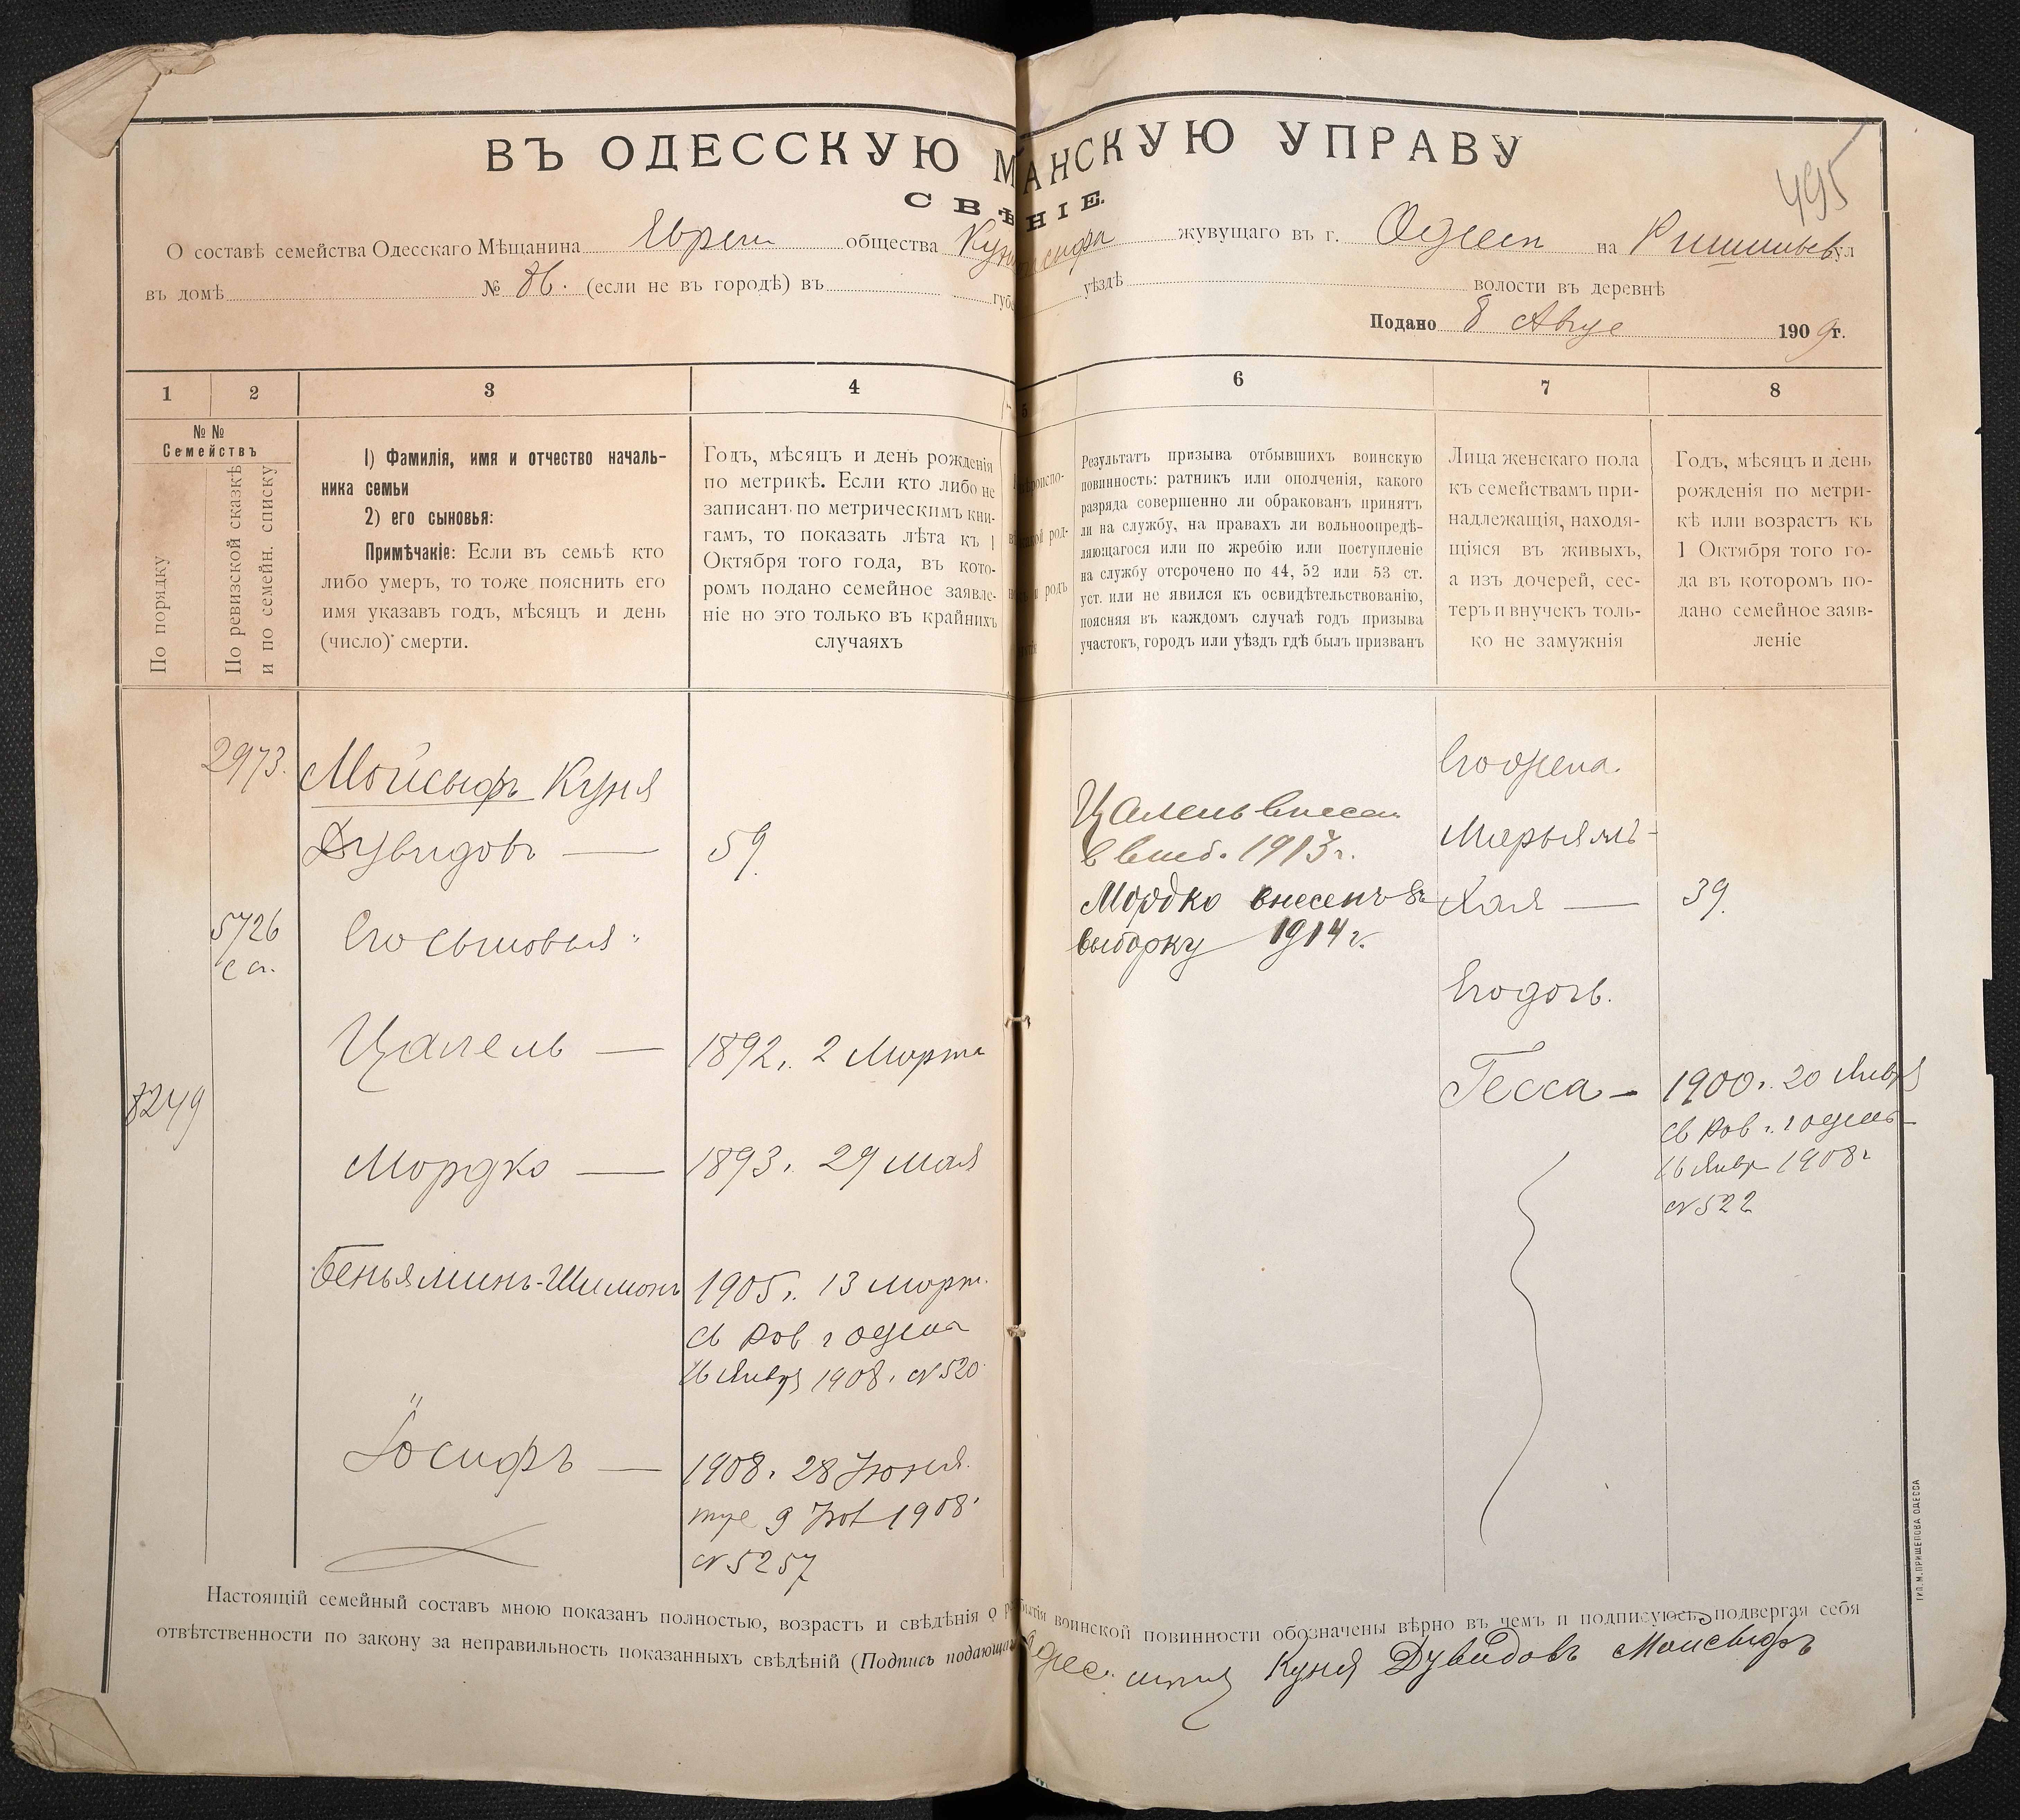 495
ВЪ ОДЕССКУЮ М АНСКУЮ УПРАВУ
СВѢ НІЕ.
О составѣ семейства Одесскаго Мѣщанина Еврея общества жувущаго въ г. Одессѣ на Ришельев ул
въ домѣ № 86. (если не въ городѣ) въ губе уѣздѣ волости въ деревнѣ
Подано 8 Авгус 1909 г.
1 2 3 4 5 6 7 8
№ №
Семействъ
По порядку
По ревизской сказкѣ
и по семейн. списку
1) Фамилія, имя и отчество началь-
ника семьи
2) его сыновья:
Примѣчакіе: Если въ семьѣ кто
либо умеръ, то тоже пояснить его
имя указавъ годъ, мѣсяцъ и день
(число) смерти.
Годъ, мѣсяцъ и день рожденія
по метрикѣ. Если кто либо не
записанъ по метрическимъ кни-
гамъ, то показать лѣта къ 1
Октября того года, въ кото-
ромъ подано семейное заявле-
ніе но это только въ крайнихъ
случаяхъ
Результатъ призыва отбывшихъ воинскую
повинность: ратникъ или ополченія, какого
разряда совершенно ли обракованъ принятъ
ли на службу, на правахъ ли вольноопредѣ-
ляющагося или по жребію или поступленіе
на службу отсрочено по 44, 52 или 53 ст.
уст. или не явился къ освидѣтельствованію,
поясняя въ каждомъ случаѣ годъ призыва
участокъ, городъ или уѣздъ гдѣ былъ призванъ
Лица женскаго пола
къ семействамъ при-
надлежащія, находя-
щіяся въ живыхъ,
а изъ дочерей, сес-
теръ и внучекъ толь-
ко не замужнія
Годъ, мѣсяцъ и день
рожденія по метри-
кѣ или возрастъ къ
1 Октября того го-
да въ которомъ по-
дано семейное заяв-
леніе
2973.
Мойсыфъ Куня
Дувидовъ — 59.
5726
с сп.
Его сыновья:
Цалель — 1892 г. 2 Марта
8249
Мордко — 1893 г. 29 мая
Беньяминъ-Шимонъ 1905 г. 13 март.
св Рав г одесса
16 Январ 1908 г. № 520
Іосифъ — 1908 г. 28 Іюня.
9 1908
№ 5257
Цалель внесен
в выб. 1913 г.
Мордко внесенъ въ
выборку 1914 г.
Его жена.
Марьямъ-
Хая — 39.
Его доч.
Гесса — 1900 г. 20 Январ
св Рав г. Одессы
16 Янвр 1908 г
№ 522
Настоящій семейный составъ мною показанъ полностью, возрастъ и свѣдѣнія о бытія воинской повинности обозначены вѣрно въ чемъ и подписуюсь подвергая себя
отвѣтственности по закону за неправильность показанныхъ свѣдѣній (Подпись подающаго Одес. Куня Дувидовъ Мойсыфъ
ТИП. М. ПРИЩЕПОВА ОДЕССА